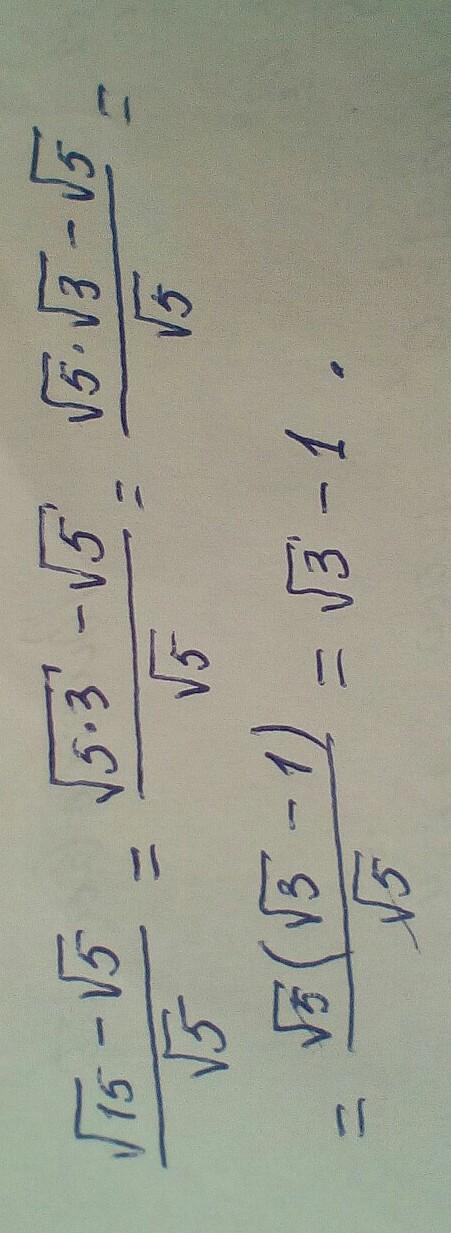 (√15 - √5)/√5 = (√(5·3) - √5)/√5 = (√5·√3 - √5)/√5 =
= √5(√3 - 1)/√5 = √3 - 1.